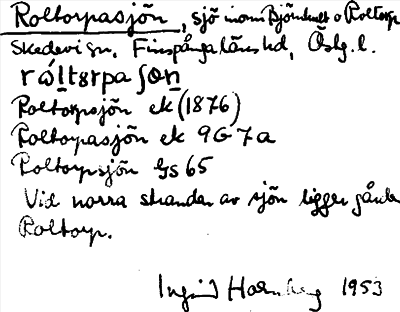 Roltorpasjön, sjö inom Björnhult o Roltorp
Skedevi sn, Finspånga läns hd, Östg. l.
Roltorpsjön ek (1876)
Roltorpasjön ek 9G7a
Roltorpsjön GS 65
Vid norra stranden av sjön ligger gården
Roltorp.
Ingrid 1953